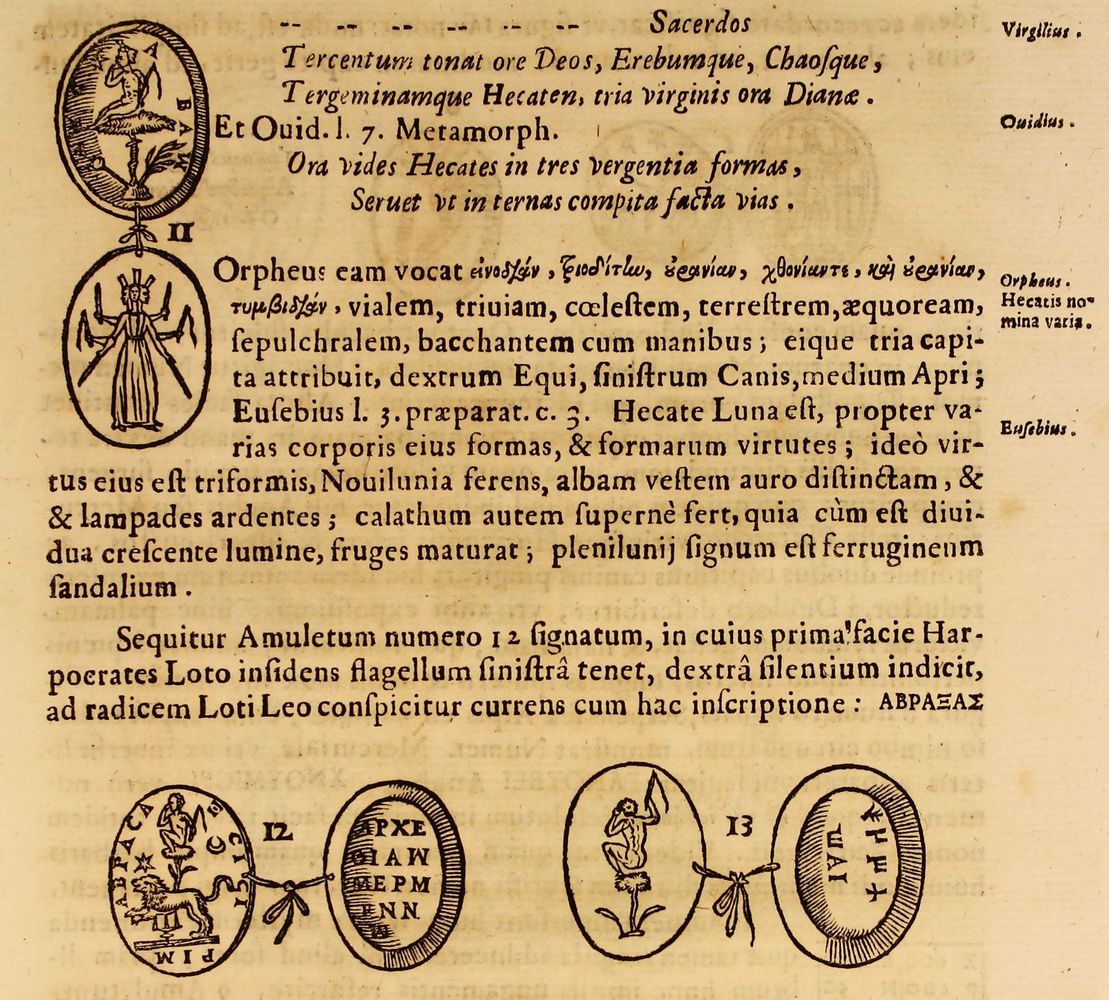 -- -- -- -- -- -- Sacerdos
Virgilius .
Tercentum tonat ore Deos, Erebumque, Chaoſque,
Tergeminamque Hecaten, tria virginis ora Dianæ .
Et Ouid. l. 7. Metamorph.
Ouidius .
Ora vides Hecates in tres vergentia formas,
Seruet vt in ternas compita facta vias .
11
Orpheus eam vocat
χθονίαν τε, καὶ
Orpheus .
vialem, triuiam, cœleſtem, terreſtrem, æquoream,
Hecatis no-
mina varia.
ſepulchralem, bacchantem cum manibus ; eique tria capi-
ta attribuit, dextrum Equi, ſiniſtrum Canis, medium Apri ;
Euſebius l. 3. præparat. c. 3. Hecate Luna eſt, propter va-
Euſebius .
rias corporis eius formas, & formarum virtutes ; ideò vir-
tus eius eſt triformis, Nouilunia ferens, albam veſtem auro diſtinctam, &
& lampades ardentes ; calathum autem ſupernè fert, quia cùm eſt diui-
dua creſcente lumine, fruges maturat ; plenilunij ſignum eſt ferrugineum
ſandalium .
Sequitur Amuletum numero 12 ſignatum, in cuius prima facie Har-
pocrates Loto inſidens flagellum ſiniſtrâ tenet, dextrâ ſilentium indicit,
ad radicem Loti Leo conſpicitur currens cum hac inſcriptione : ΑΒΡΑΞΑΣ
12
ΑΡΧΕ
ΜΕΡΜ
13